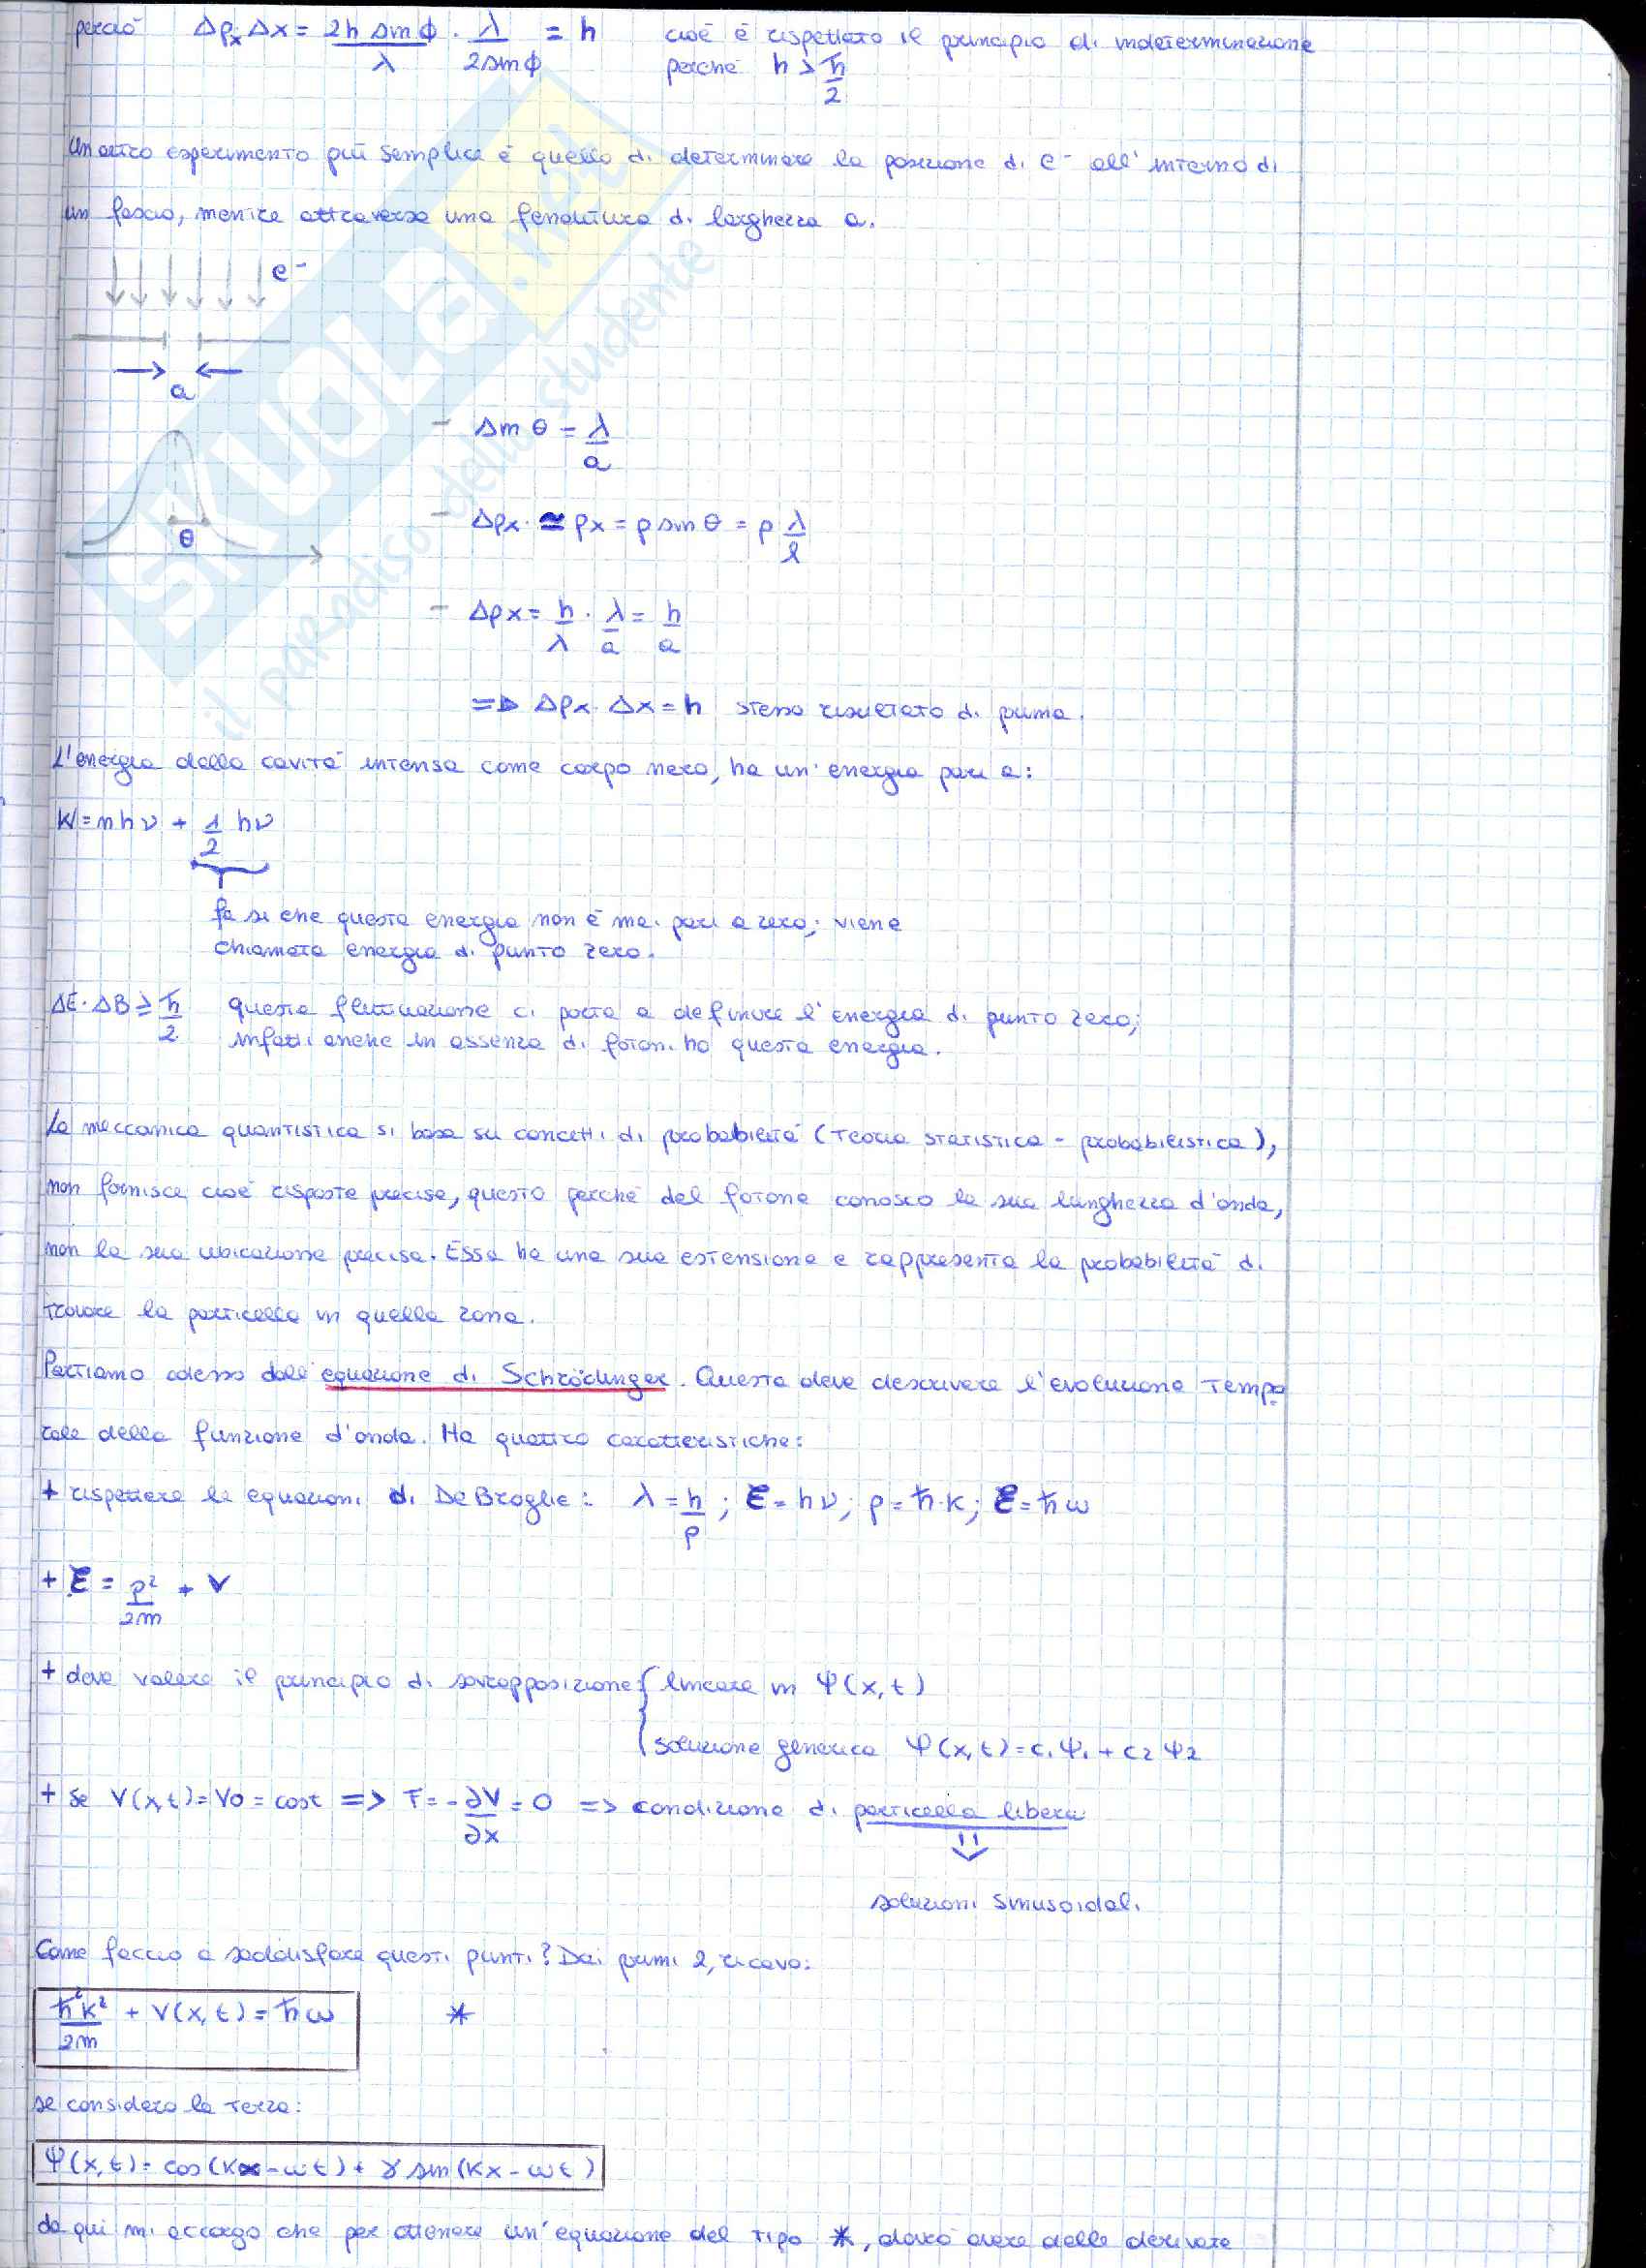 perciò Δpx Δx = 2h sin ϕ / λ · λ / 2 sin ϕ = h cioè è rispettato il principio di indeterminazione
perché h > ħ/2
Un altro esperimento più semplice è quello di determinare la posizione di e⁻ all'interno di
un fascio, mentre attraversa una fenditura di larghezza a.
e⁻
a
- sin θ = λ/a
θ
- Δpx ≃ px = p sin θ = p λ/l
- Δpx = h/λ · λ/a = h/a
=> Δpx · Δx = h stesso risultato di prima.
L'energia della cavità intensa come corpo nero, ha un'energia pari a:
W = nhν + 1/2 hν
fa si che questa energia non è mai pari a zero; viene
chiamata energia di punto zero.
ΔE · ΔB ≥ ħ/2 questa fluttuazione ci porta a definire l'energia di punto zero;
infatti anche in assenza di fotoni ho questa energia.
La meccanica quantistica si basa su concetti di probabilità (teoria statistica - probabilistica),
non fornisce cioè risposte precise, questo perché del fotone conosco la sua lunghezza d'onda,
non la sua ubicazione precisa. Essa ha una sua estensione e rappresenta la probabilità di
trovare la particella in quella zona.
Partiamo adesso dall'equazione di Schrödinger. Questa deve descrivere l'evoluzione tempo
rale della funzione d'onda. Ha quattro caratteristiche:
+ rispettare le equazioni di De Broglie: λ = h/p ; E = hν; p = ħ·k; E = ħω
+ E = p²/2m + V
+ deve valere il principio di sovrapposizione { lineare in Ψ(x,t)
soluzione generica Ψ(x,t) = c₁Ψ₁ + c₂Ψ₂
+ Se V(x,t) = V0 = cost => F = -∂V/∂x = 0 => condizione di particella libera
⇓
soluzioni sinusoidali
Come faccio a soddisfare questi punti? Dai primi 2, ricavo:
ħ²k²/2m + V(x,t) = ħω *
se considero la terza:
Ψ(x,t) = cos(kx - ωt) + γ sin(kx - ωt)
da qui mi accorgo che per ottenere un'equazione del tipo *, dovrò avere delle derivate
SKUOLA.net
il paradiso dello studente